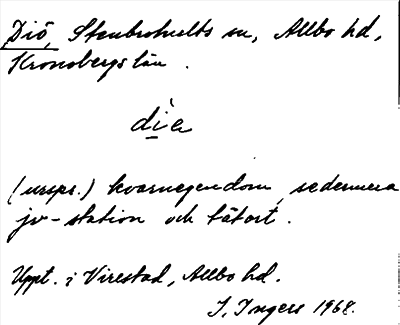 Diö, Stenbrohults sn, Allbo hd,
Kronobergs län.
dìe
(urspr.) kvarnegendom, sedermera
jv-station och tätort.
Uppt. i Virestad, Allbo hd.
I. Ingers 1968.